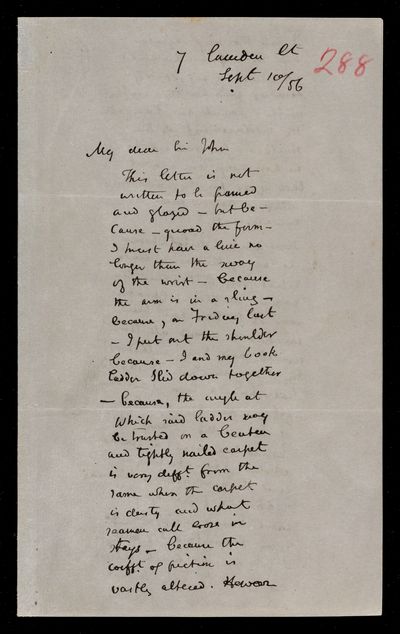 7 Camden St
288
Sept 10/56
My dear Sir John
This letter is not
written to be framed
and glazed – but be–
cause – quoad the form –
I must have a line no
longer than the sway
of the wrist – because
the arm is in a sling –
because, on Friday last
– I put out the shoulder
because – I and my book
ladder slid down together
– because, the angle at
which said ladder may
be trusted on a beaten
and tightly nailed carpet
is very difft from the
same when the carpet
is dusty and what
seamen call loose in
stays – because the
coefft of friction is
vastly altered. However